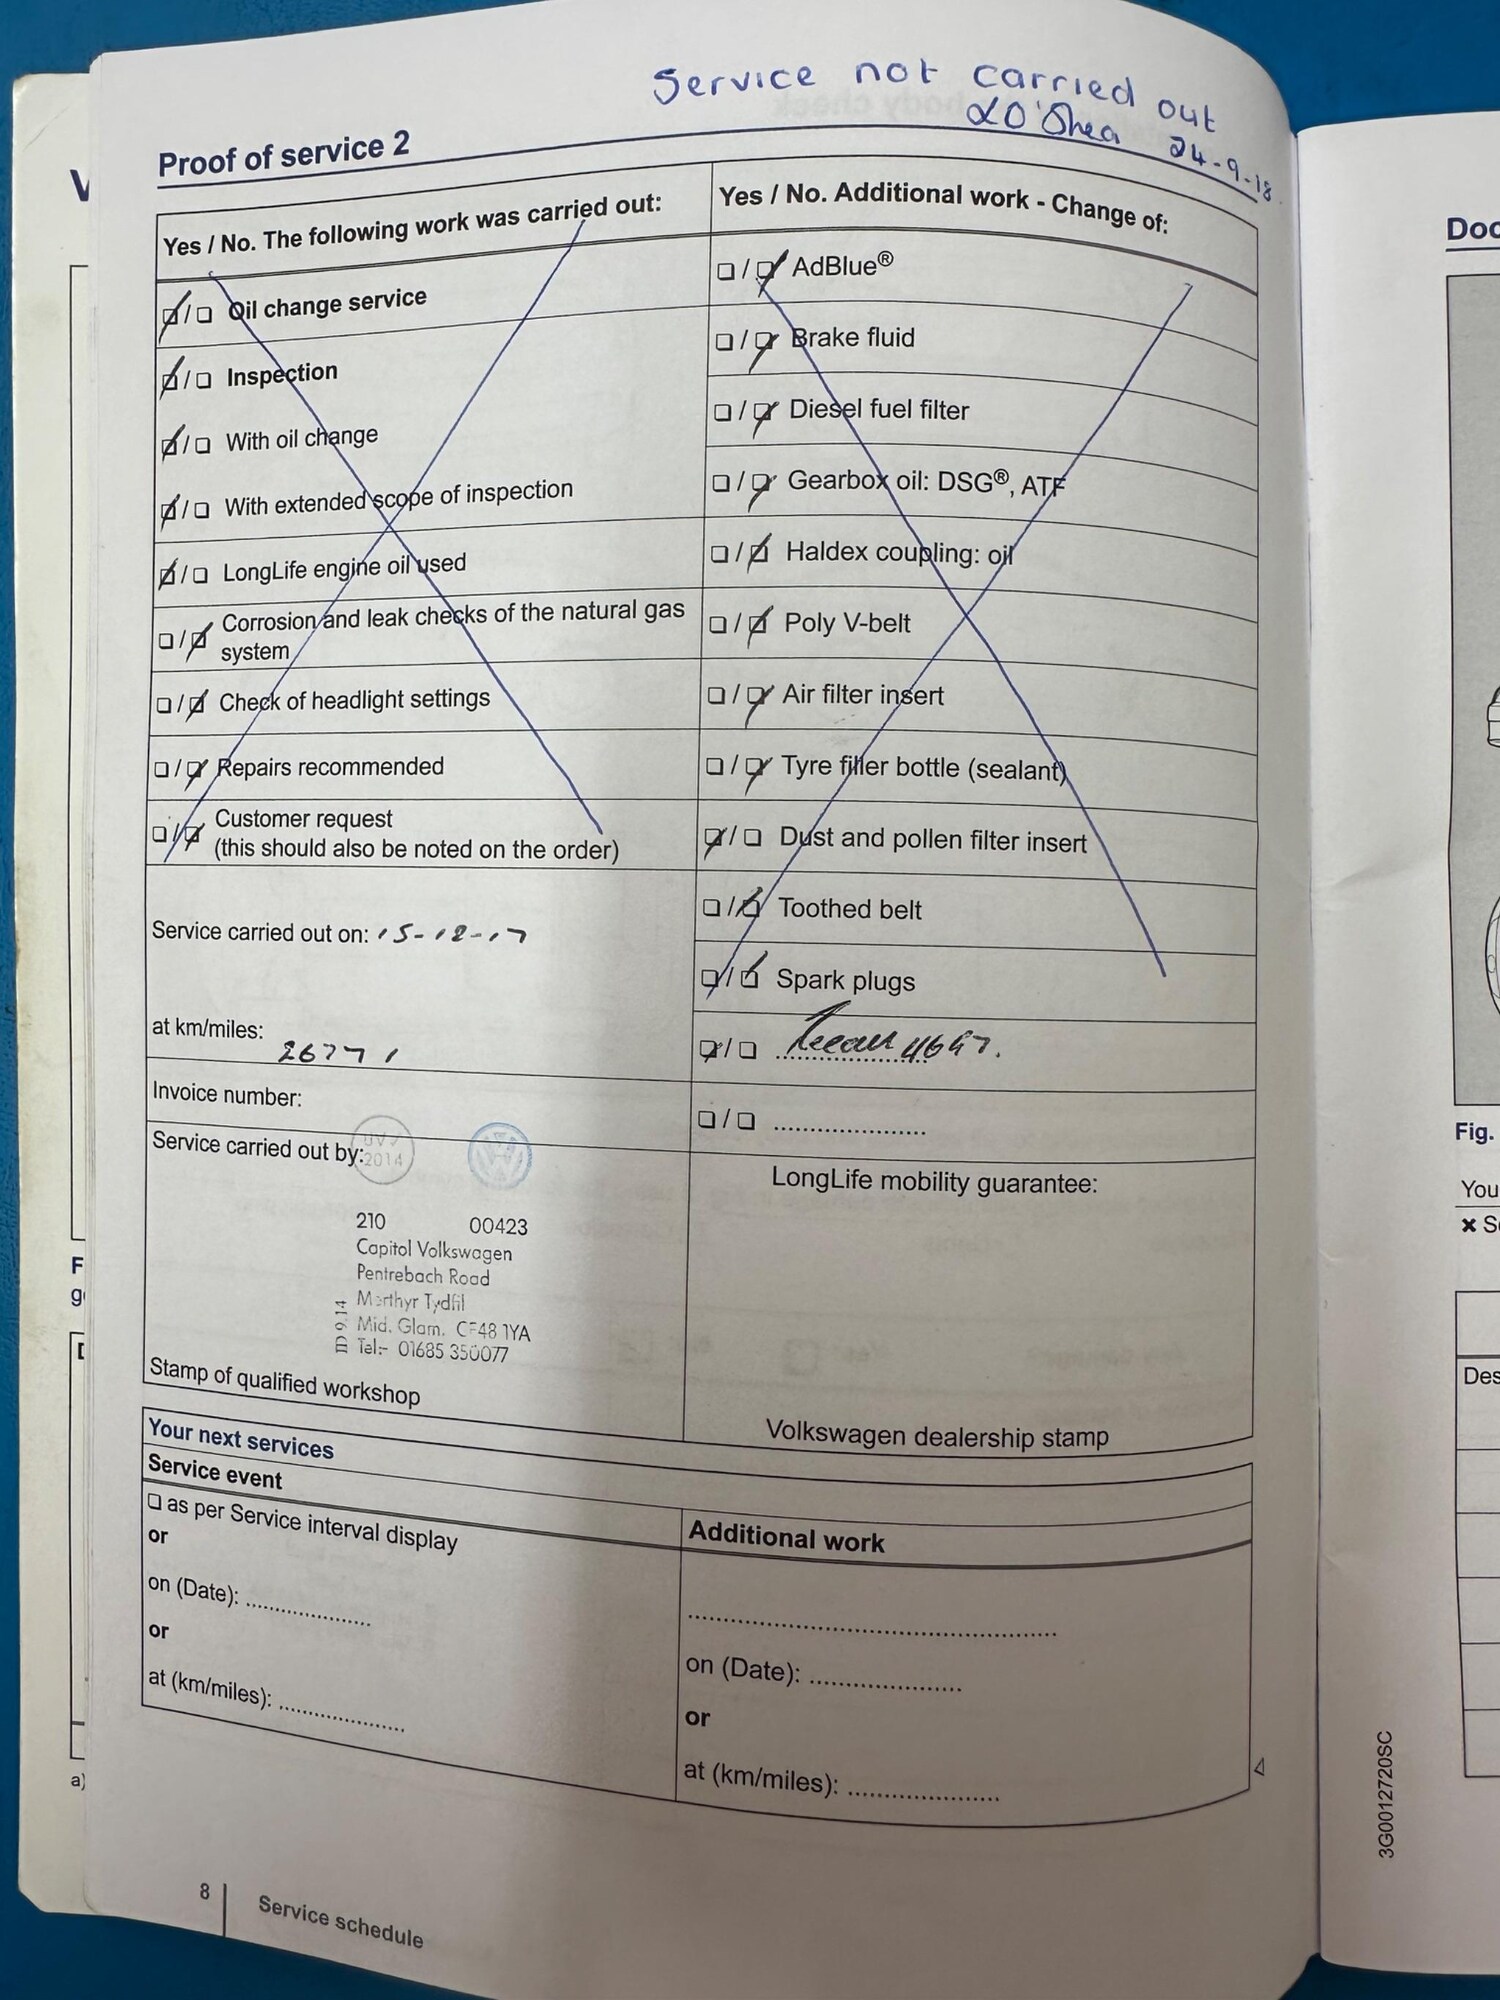 Service not carried out
LO'Shea 24-9-18
Proof of service 2
Yes / No. The following work was carried out:
❏ / ❏ Oil change service
❏ / ❏ Inspection
❏ / ❏ With oil change
❏ / ❏ With extended scope of inspection
❏ / ❏ LongLife engine oil used
❏ / ❏ Corrosion and leak checks of the natural gas
system
❏ / ❏ Check of headlight settings
❏ / ❏ Repairs recommended
❏ / ❏ Customer request
(this should also be noted on the order)
Service carried out on: 15-12-17
at km/miles:
26771
Invoice number:
Service carried out by:
2014
210 00423
Capitol Volkswagen
Pentrebach Road
Merthyr Tydfil
Mid. Glam. CF48 1YA
Tel:- 01685 350077
Stamp of qualified workshop
Yes / No. Additional work - Change of:
❏ / ❏ AdBlue®
❏ / ❏ Brake fluid
❏ / ❏ Diesel fuel filter
❏ / ❏ Gearbox oil: DSG®, ATF
❏ / ❏ Haldex coupling: oil
❏ / ❏ Poly V-belt
❏ / ❏ Air filter insert
❏ / ❏ Tyre filler bottle (sealant)
❏ / ❏ Dust and pollen filter insert
❏ / ❏ Toothed belt
❏ / ❏ Spark plugs
❏ / ❏
❏ / ❏ .....................
LongLife mobility guarantee:
Volkswagen dealership stamp
Your next services
Service event
❏ as per Service interval display
or
on (Date): .....................
or
at (km/miles): .....................
Additional work
...............................................................
on (Date): .........................
or
at (km/miles): .........................
8 Service schedule
Doc
Fig.
You
Des
3G0012720SC